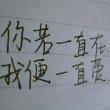 你若一直在,
我便一直爱。